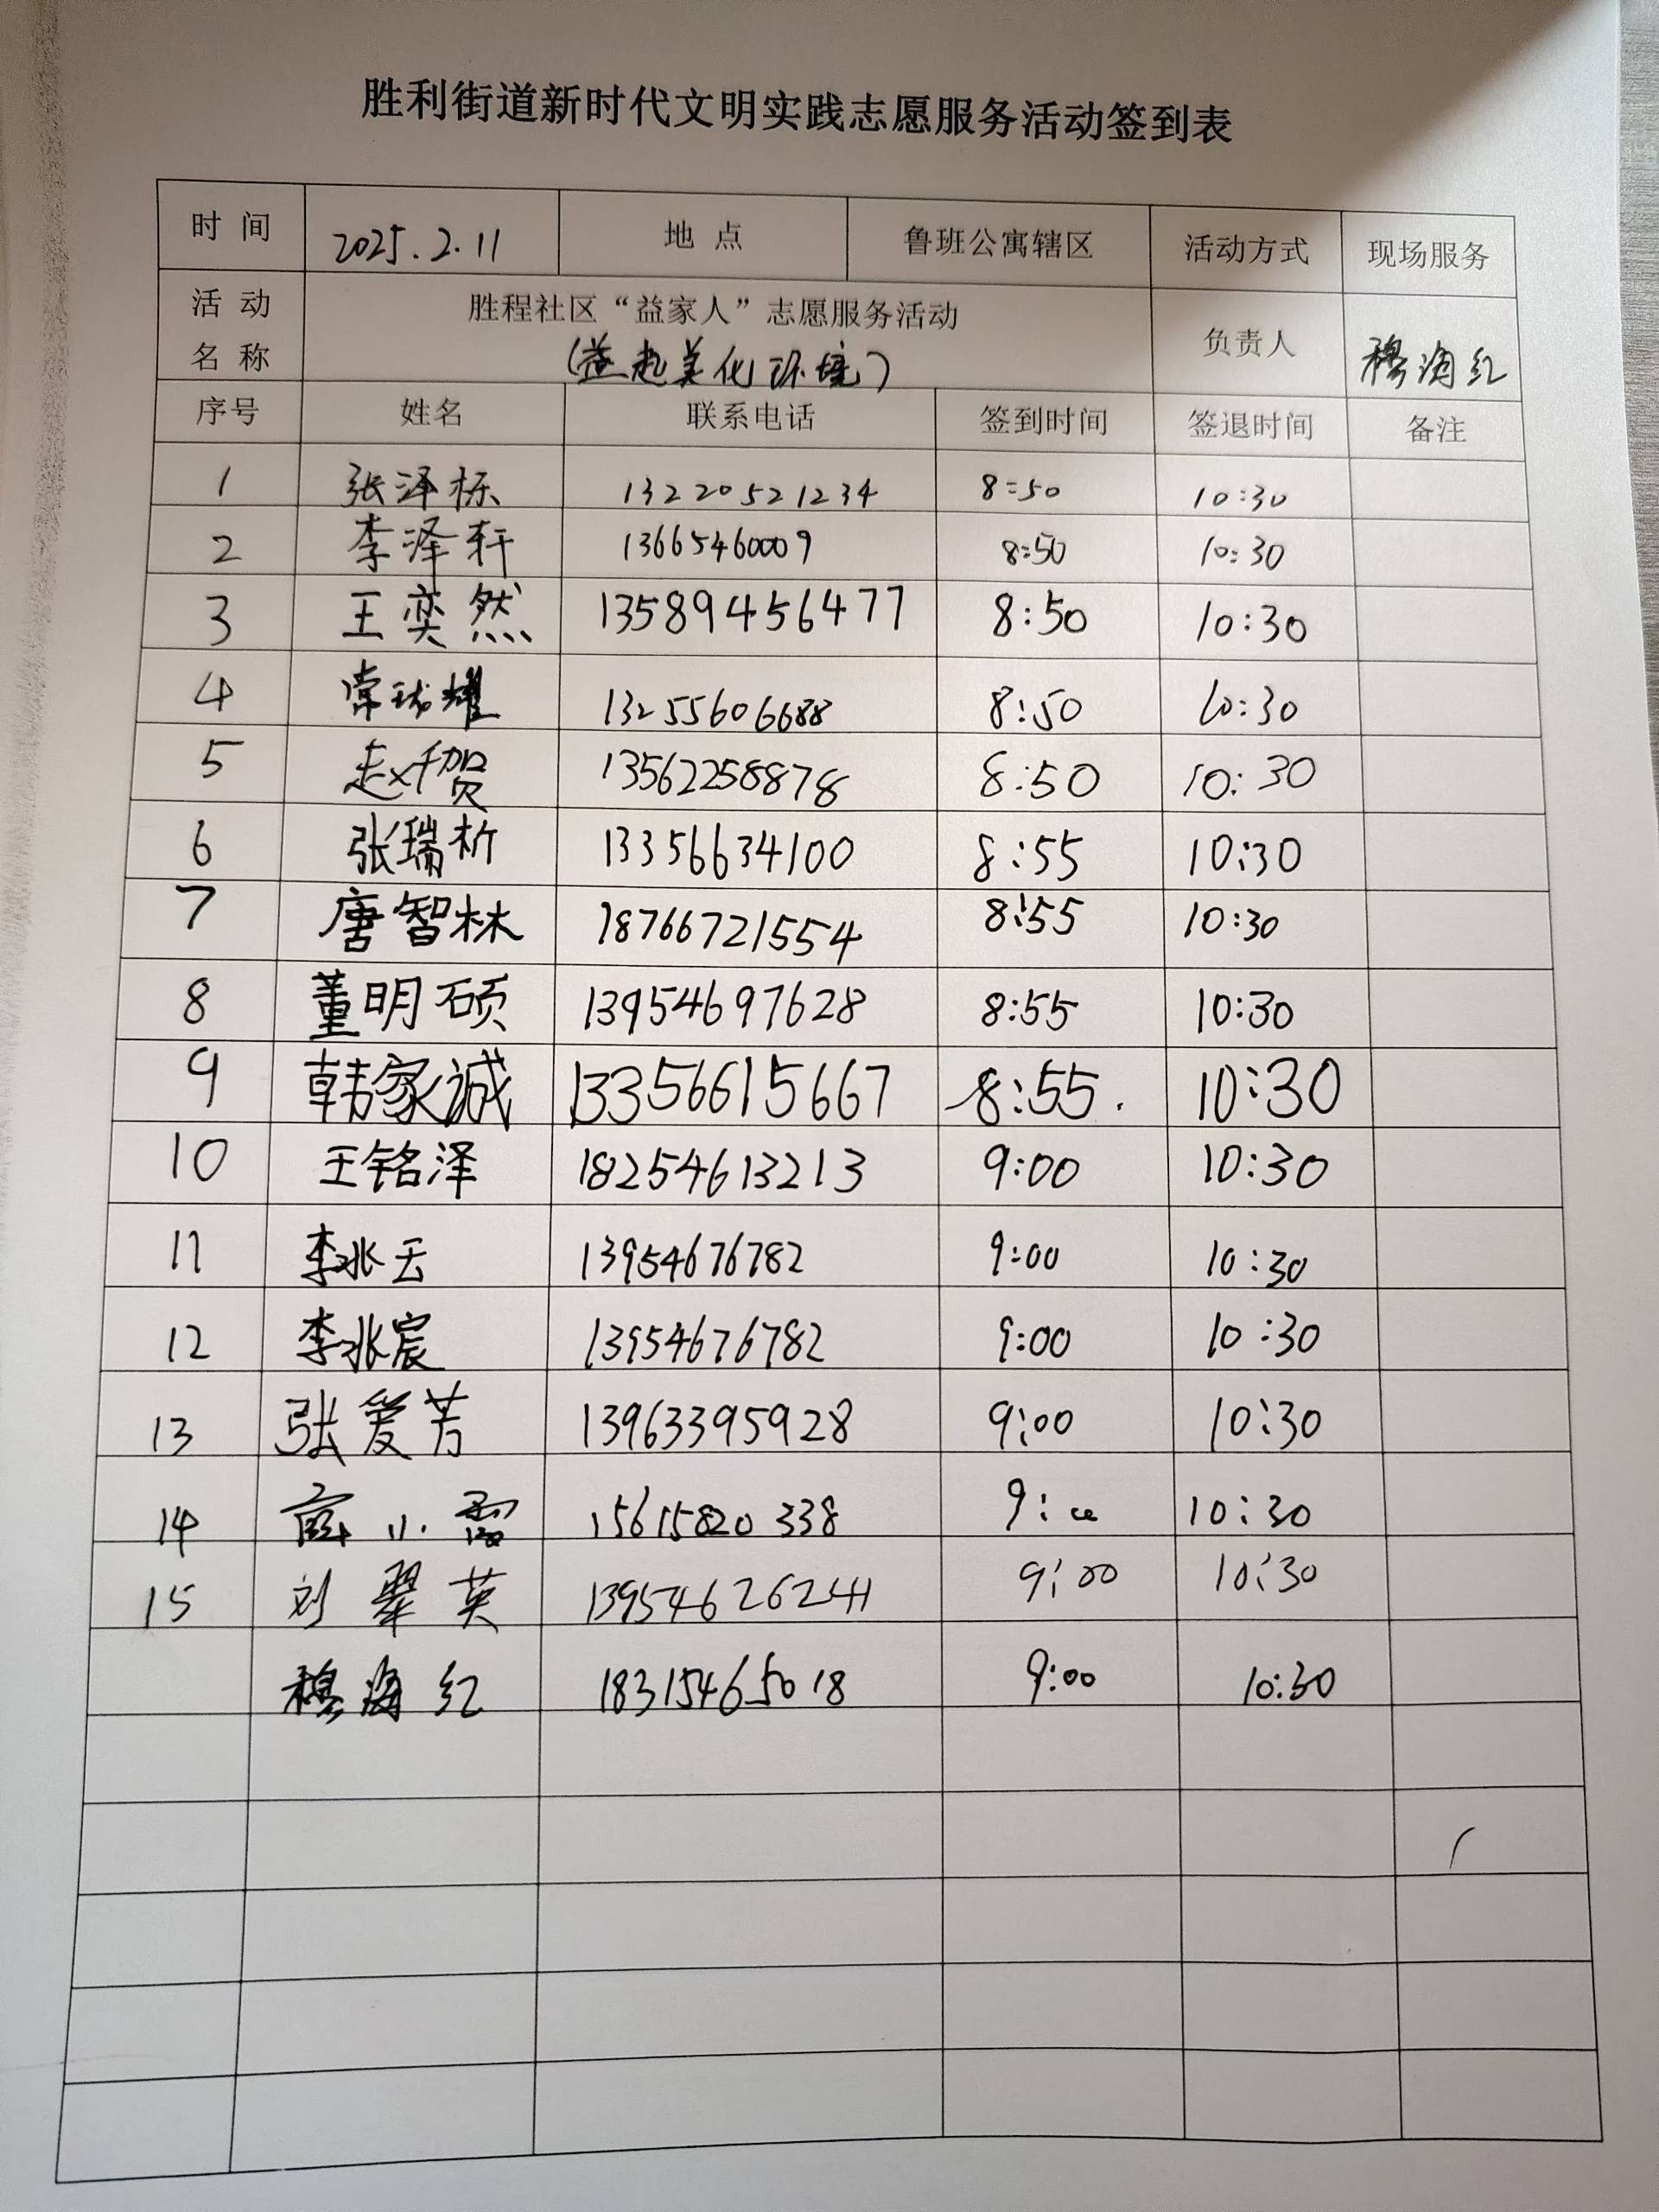 胜利街道新时代文明实践志愿服务活动签到表
时 间 2025.2.11 地 点 鲁班公寓辖区 活动方式 现场服务
活 动 名 称 胜程社区“益家人”志愿服务活动 负责人 穆海红
(益起美化环境)
序号 姓名 联系电话 签到时间 签退时间 备注
1 张泽栎 13220521234 8:50 10:30
2 李泽轩 13665460009 8:50 10:30
3 王奕然 135894456477 8:50 10:30
4 常 耀 13255606688 8:50 10:30
5 赵仟贺 13562258878 8:50 10:30
6 张瑞析 13356634100 8:55 10:30
7 唐智林 18766721554 8:55 10:30
8 董明硕 13954697628 8:55 10:30
9 韩家诚 13356615667 8:55. 10:30
10 王铭泽 18254613213 9:00 10:30
11 李兆云 13954676782 9:00 10:30
12 李兆宸 13954676782 9:00 10:30
13 张爱芳 13963395928 9:00 10:30
14 小 15615820338 9:00 10:30
15 刘翠英 13954626241 9:00 10:30
穆海红 18315465018 9:00 10:30